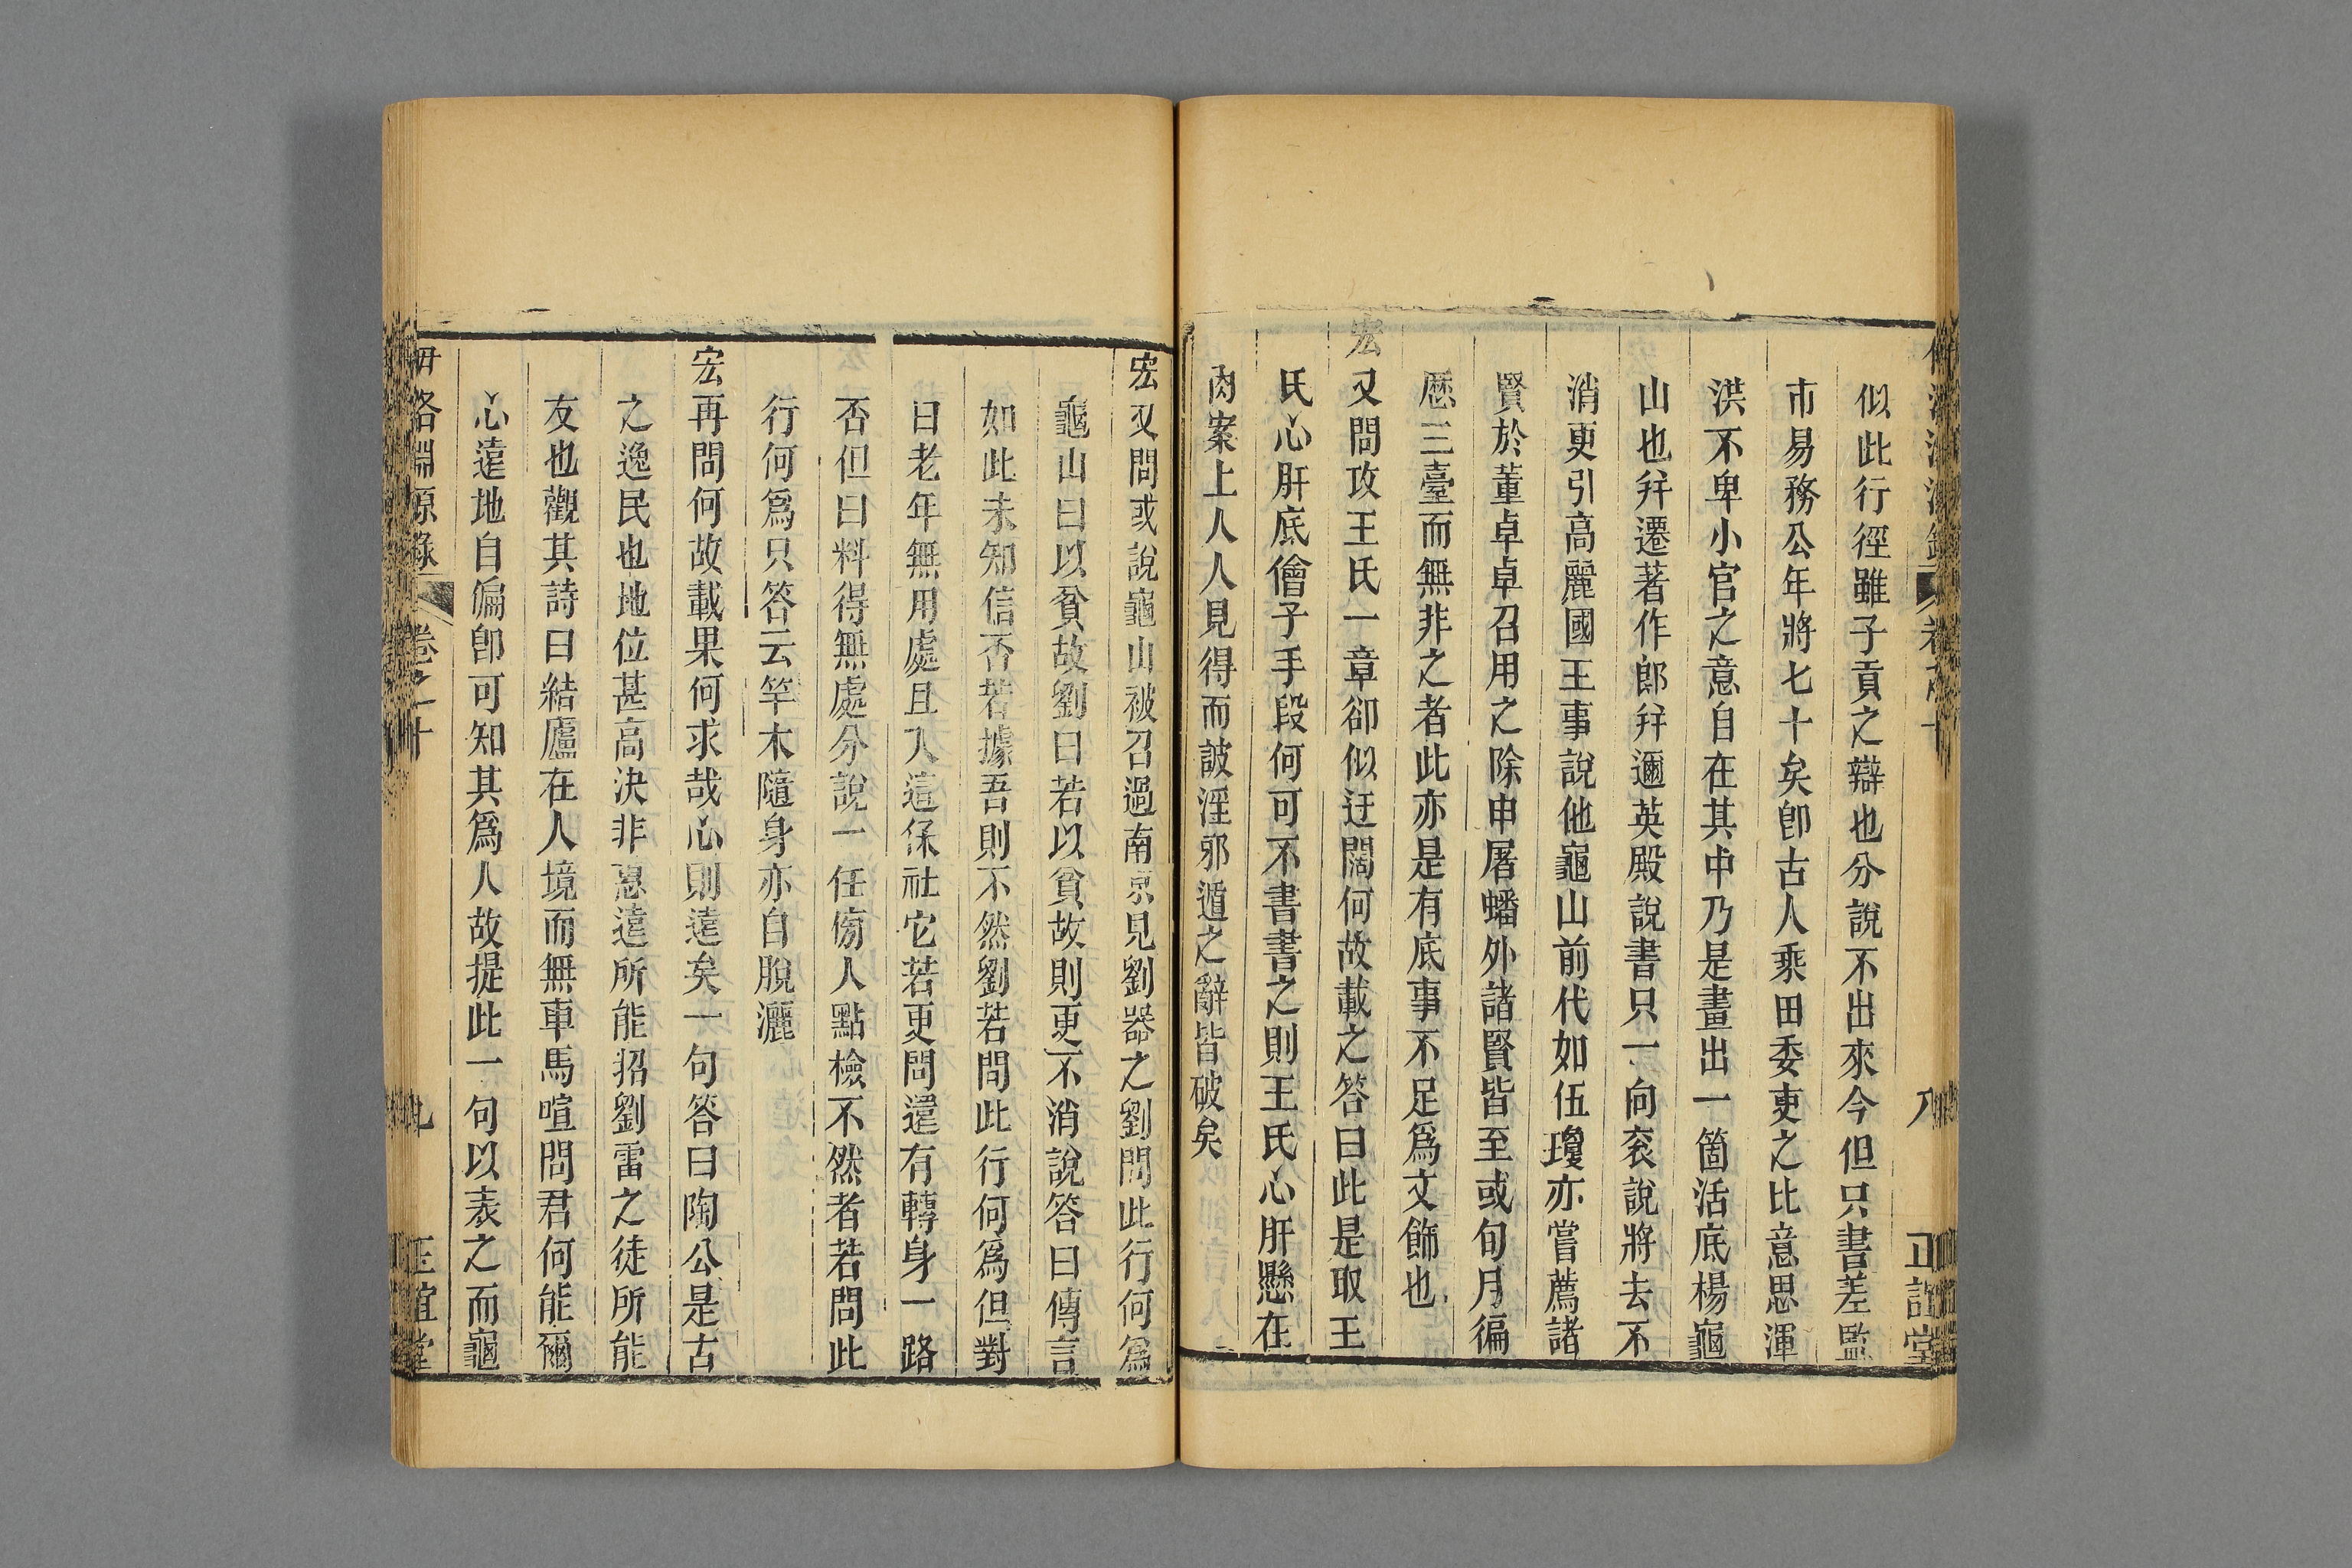 似此行徑雖子貢之辯也分說不出來今但只書差監
市易務公年將七十矣卽古人乘田委吏之比意思渾
洪不卑小官之意自在其中乃是畫出一箇活底楊龜
山也幷遷著作郎幷邇英殿說書只一向袞說將去不
消更引高麗國王事說他龜山前代如伍瓊亦嘗薦諸
賢於董卓卓召用之除申屠蟠外諸賢皆至或旬月徧
歷三臺而無非之者此亦是有底事不足爲文飾也
宏又問攻王氏一章卻似迂闊何故載之答曰此是取王
氏心肝底儈子手段何可不書書之則王氏心肝懸在
肉案上人人見得而詖淫邪遁之辭皆破矣
宏又問或說龜山被召過南京見劉器之劉問此行何爲
龜山曰以貧故劉曰若以貧故則更不消說答曰傳言
如此未知信否若據吾則不然劉若問此行何爲但對
曰老年無用處且入這保社它若更問還有轉身一路
否但曰料得無處分說一任傍人點檢不然者若問此
行何爲只答云竿木隨身亦自脫灑
宏再問何故載果何求哉心則遠矣一句答曰陶公是古
之逸民也地位甚高決非惠遠所能招劉雷之徒所能
友也觀其詩曰結廬在人境而無車馬喧問君何能爾
心遠地自偏卽可知其爲人故提此一句以表之而龜
伊洛淵源錄 卷之十 九 正誼堂